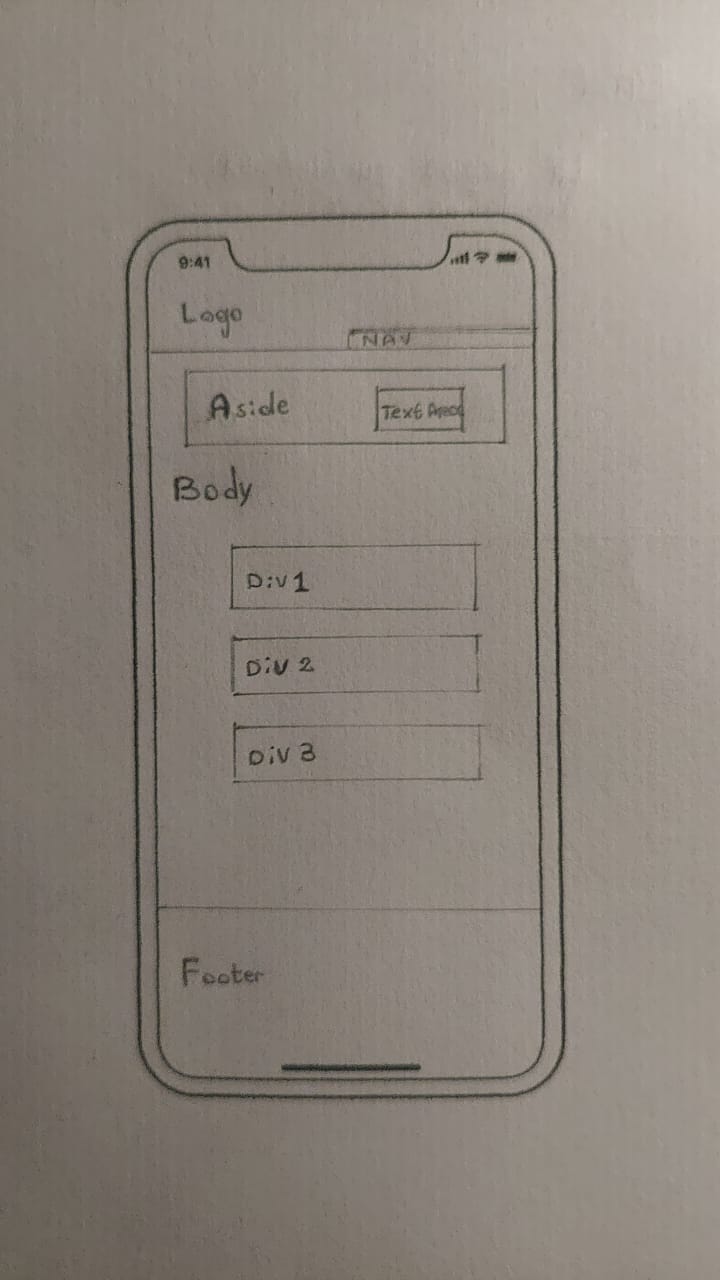 9:41
Logo
NAV
Aside
Text Area
Body
Div 1
Div 2
Div 3
Footer